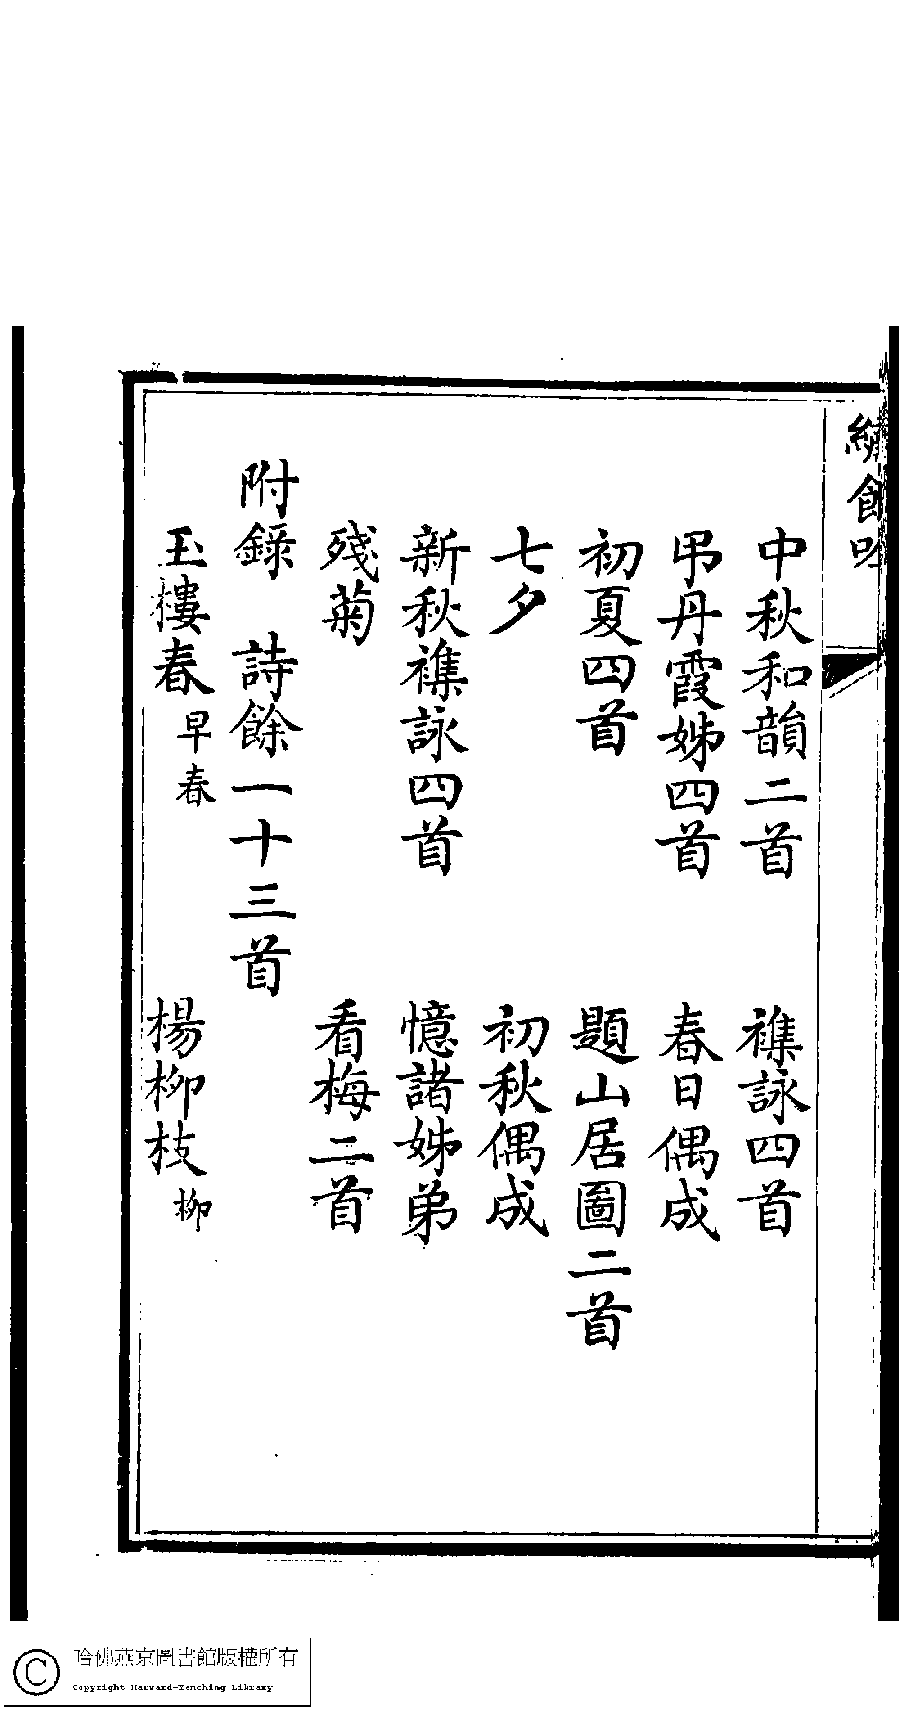 繡餘吟
中秋和韻二首　襍詠四首
弔丹霞姊四首　春日偶成
初夏四首　題山居圖二首
七夕　初秋偶成
新秋襍詠四首　憶諸姊弟
殘菊　看梅二首
附錄　詩餘一十三首
玉樓春早春　楊柳枝柳
哈佛燕京圖書館版權所有
Copyright Harvard-Yenching Library